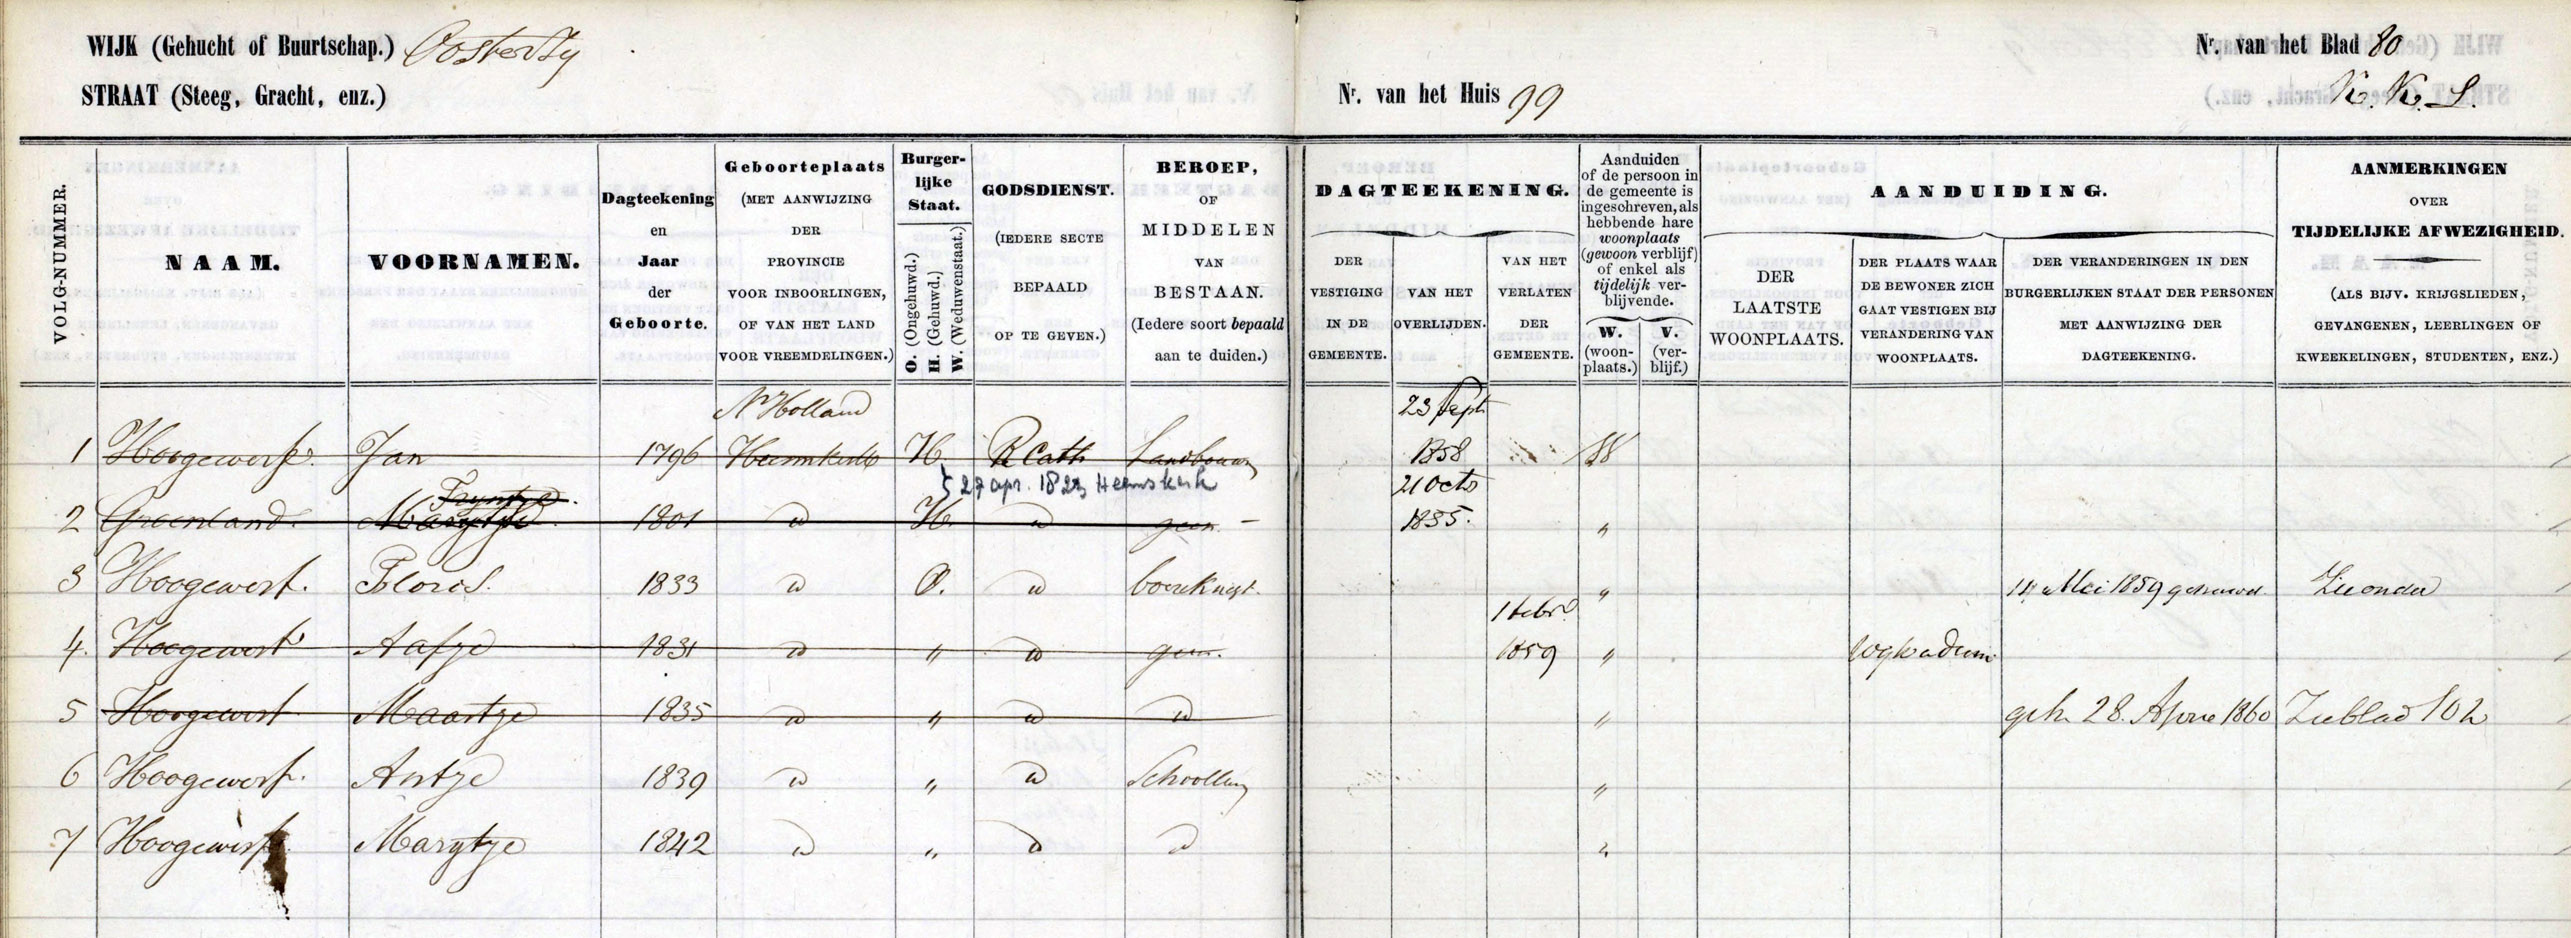 WIJK (Gehucht of Buurtschap.) Oosterzy
Nr. van het Blad 80
STRAAT (Steeg, Gracht, enz.)
Nr. van het Huis 99
K. K. S.
VOLG-NUMMER.
NAAM.
VOORNAMEN.
Dagteekening
en
Jaar
der
Geboorte.
Geboorteplaats
(MET AANWIJZING
DER
PROVINCIE
VOOR INBOORLINGEN,
OF VAN HET LAND
VOOR VREEMDELINGEN.)
Burger-
lijke
Staat.
O. (Ongehuwd.)
H. (Gehuwd.)
W. (Weduwenstaat.)
GODSDIENST.
(IEDERE SECTE
BEPAALD
OP TE GEVEN.)
BEROEP,
OF
MIDDELEN
VAN
BESTAAN.
(Iedere soort bepaald
aan te duiden.)
DAGTEEKENING.
DER
VESTIGING
IN DE
GEMEENTE.
VAN HET
OVERLIJDEN.
VAN HET
VERLATEN
DER
GEMEENTE.
Aanduiden
of de persoon in
de gemeente is
ingeschreven, als
hebbende hare
woonplaats
(gewoon verblijf)
of enkel als
tijdelijk ver-
blijvende.
W.
(woon-
plaats.)
V.
(ver-
blijf.)
AANDUIDING.
DER
LAATSTE
WOONPLAATS.
DER PLAATS WAAR
DE BEWONER ZICH
GAAT VESTIGEN BIJ
VERANDERING VAN
WOONPLAATS.
DER VERANDERINGEN IN DEN
BURGERLIJKEN STAAT DER PERSONEN
MET AANWIJZING DER
DAGTEEKENING.
AANMERKINGEN
OVER
TIJDELIJKE AFWEZIGHEID.
(ALS BIJV. KRIJGSLIEDEN,
GEVANGENEN, LEERLINGEN OF
KWEEKELINGEN, STUDENTEN, ENZ.)
N Holland 23 Sept
1 Hoogewerf. Jan 1796 Heemskerk H. R Cath Landbouwer 1858 W
27 apr. 1823 Heemskerk
Tryntje 21 Octo
2 Groenland. Marytje 1801 " H. " geen - 1855. "
3 Hoogewerf. Floris. 1833 " O. " boereknegt. " 11 Mei 1859 getrouwd Zie onder
1 Febr.
4. Hoogewerf Aafje 1831 " " " geen. 1859 " Wyk a Duin
5 Hoogewerf Maartje 1835 " " " " " geh. 28. April 1860 Zie blad 102
6 Hoogewerf. Antje 1839 " " " Schoolling "
7 Hoogewerf. Marytje 1842 " " " " "